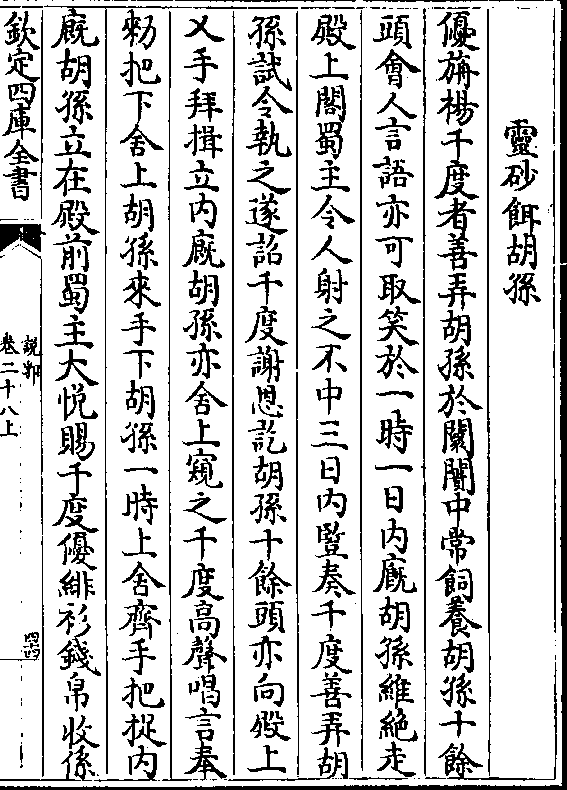 靈砂餌胡孫
優旃楊千度者善弄胡孫於闤闠中常飼養胡孫十餘
頭會人言語亦可取笑於一時一日内廐胡孫維絶走
殿上閣蜀主令人射之不中三日内豎奏千度善弄胡
孫試令執之遂詔千度謝恩訖胡孫十餘頭亦向殿上
乂手拜揖立内廐胡孫亦舍上窺之千度高聲唱言奉
勑把下舍上胡孫來手下胡孫一時上舍齊手把捉内
廐胡孫立在殿前蜀主大悦賜千度優緋衫錢帛收係
欽定四庫全書
說郛
卷二十八上
四四